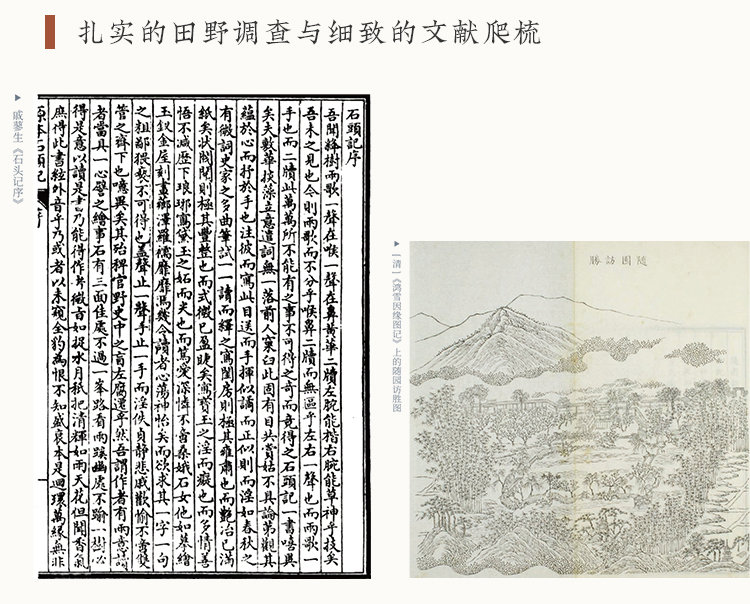 扎实的田野调查与细致的文献爬梳
戚蓼生《石头记序》
石頭記序
吾聞絳樹兩歌一聲在喉一聲在鼻黃華二牘左腕能楷右腕能草神乎技矣
吾未之見也今則兩歌而不分乎喉鼻二牘而無區乎左右一聲也而兩歌一
手也而二牘此萬萬所不能有之事不可得之奇而竟得之石頭記一書嘻異
矣夫敷華掞藻立意遣詞無一落前人窠臼此固有目共賞姑不具論第觀其
蘊於心而抒於手也注彼而寫此目送而手揮似譎而正似則而淫如春秋之
有微詞史家之多曲筆試一一讀而繹之寫閨房則極其雍肅也而艷冶已滿
紙矣狀閥閱則極其豐整也而式微已盈睫矣寫寶玉之淫而癡也而多情善
悟不減歷下琅琊寫黛玉之妒而尖也而篤愛深憐不啻桑娥石女他如摹繪
玉釵金屋刻畫薌澤羅襦靡靡焉幾令讀者心蕩神怡矣而欲求其一字一句
之粗鄙猥褻不可得也蓋聲止一聲手止一手而淫佚貞靜悲戚歡愉不啻雙
管之齊下也噫異矣其殆稗官野史中之盲左腐遷乎然吾謂作者有兩意讀
者當具一心譬之繪事石有三面佳處不過一峯路看兩蹊幽處不踰一樹必
得是意以讀是書乃能得作者微旨如捉水月祇挹清輝如雨天花但聞香氣
庶得此書絃外音乎乃或者以未窺全豹為恨不知盛衰本是迴環萬緣無非
原本石頭記
〔清〕《鸿雪因缘图记》上的随园访胜图
隨園訪勝